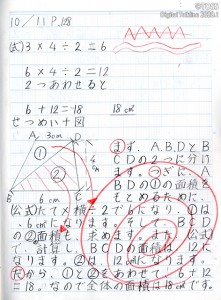 ©TOSS
Digital TokLine 2020.1
10/11 P.128
(式) 3×4÷2=6
6×4÷2=12
2つあわせると
6+12=18  18cm²
せつめい+図
A 3cm D
① ② 4cm
B 6cm C
まず、ABDとB
CDの2つに分け
ます。つぎに、A
BDの①の面積を
もとめるために、
(公式)たて×横÷2で6になり、①は
6cm²になります。
の②面積も、求めます。
で、計算し、BCDの面積は12に
なります。②は、12cm²になります。
だから、①と②をあわせて、6+12
=18。なので全体の面積は18cm²です。